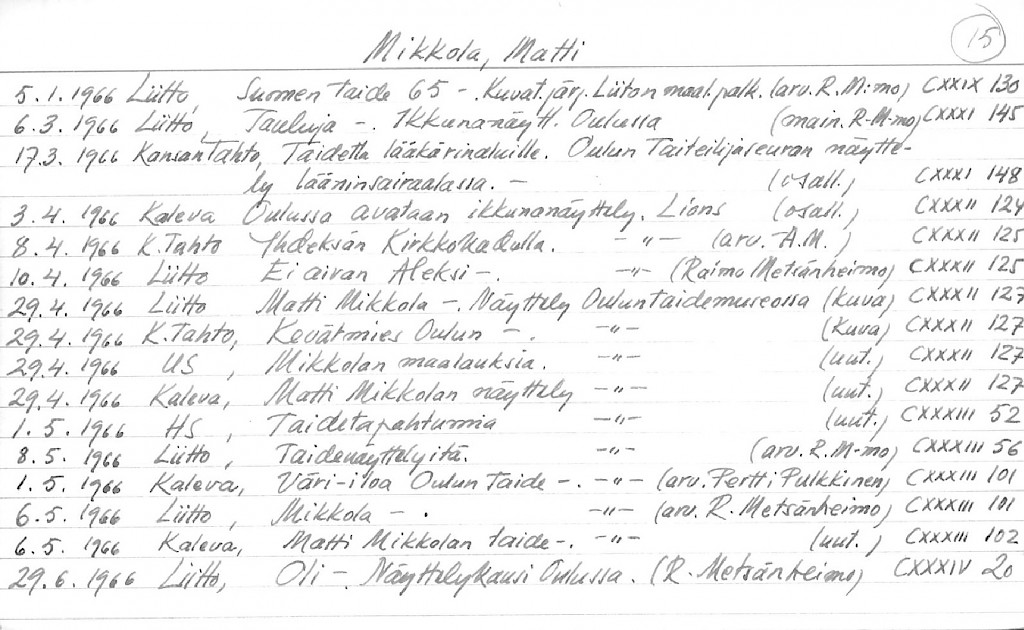 15
Mikkola, Matti
5.1.1966 Liitto, Suomen taide 65 -. Kuvat.järj. Liiton maal.palk. (arv. R.M:mo) CXXIX 130
6.3.1966 Liitto, Tauluja -. Ikkunanäytt. Oulussa (main. R-M-mo) CXXXI 145
17.3.1966 Kansan Tahto, Taidetta lääkärinaluille. Oulun Taiteilijaseuran näytte-
ly lääninsairaalassa. - (osall.) CXXXI 148
3.4.1966 Kaleva Oulussa avataan ikkunanäyttely. Lions (osall.) CXXXII 124
8.4.1966 K.Tahto Yhdeksän Kirkkokadulla. -"- (arv. A.M.) CXXXII 125
10.4.1966 Liitto Ei aivan Aleksi -. -"- (Raimo Metsänheimo) CXXXII 125
29.4.1966 Liitto Matti Mikkola -. Näyttely Oulun taidemuseossa (kuva) CXXXII 127
29.4.1966 K.Tahto, Kevätmies Oulun -. -"- (kuva) CXXXII 127
29.4.1966 US, Mikkolan maalauksia. -"- (uut.) CXXXII 127
29.4.1966 Kaleva, Matti Mikkolan näyttely -"- (uut.) CXXXII 127
1.5.1966 HS, Taidetapahtumia -"- (uut.) CXXXIII 52
8.5.1966 Liitto, Taidenäyttelyitä. -"- (arv. R.M-mo) CXXXIII 56
1.5.1966 Kaleva, Väri-iloa Oulun taide -. -"- (arv. Pertti Pulkkinen) CXXXIII 101
6.5.1966 Liitto, Mikkola -. -"- (arv. R. Metsänheimo) CXXXIII 101
6.5.1966 Kaleva, Matti Mikkolan taide -. -"- (uut.) CXXXIII 102
29.6.1966 Liitto, Oli -. Näyttelykausi Oulussa. (R. Metsänheimo) CXXXIV 20